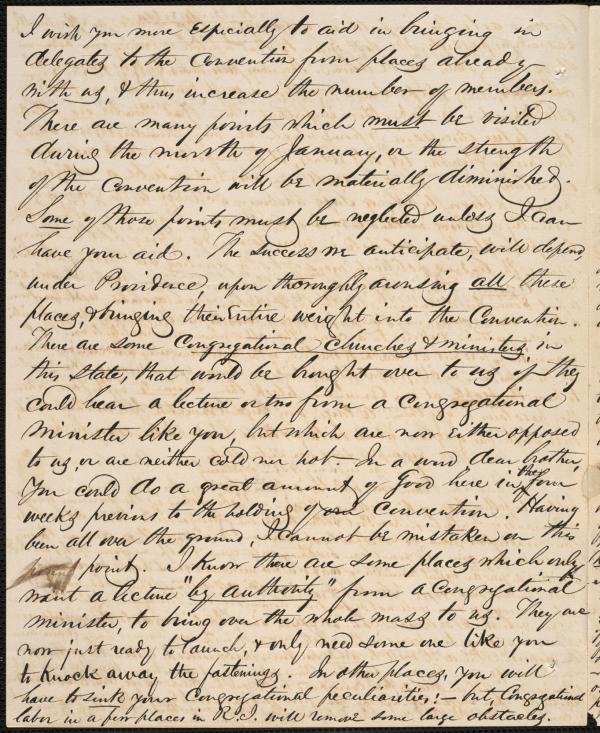 I wish you more especially to aid in bringing in
delegates to the Convention from places already
with us, & thus increase the number of members.
There are many points which must be visited
during the month of January, or the strength
of the Convention will be materially diminished.
Some of those points must be neglected unless I can
have your aid. The success we anticipate, will depend,
under Providence, upon thoroughly arousing all these
places, & bringing their entire weight into the Convention.
There are some Congregational Churches & ministers in
this State, that would be brought over to us if they
could hear a lecture or two from a Congregational
minister like you, but which are now either opposed
to us, or are neither cold nor hot. In a word dear brother,
You could do a great amount of Good here in the four
weeks previous to the holding of our Convention. Having
been all over the ground, I cannot be mistaken on this
point. I know there are some places which only
want a lecture "by authority" from a Congregational
minister, to bring over the whole mass to us. They are
now just ready to launch, & only need some one like you
to knock away the fastenings. In other places, you will
have to sink your Congregational peculiarities! — but, Congregational
labor in a few places in R.I. will remove some large obstacles.